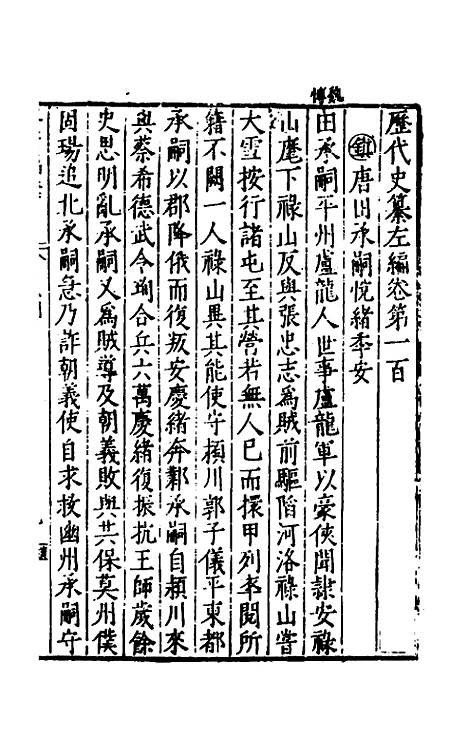 歷代史纂左編卷第一百
鎮唐田承嗣悅緒季安
魏博
田承嗣平州盧龍人世事盧龍軍以豪俠聞隸安祿
山麾下祿山反與張忠志爲賊前驅陷河洛祿山嘗
大雪按行諸屯至其營若無人已而擐甲列卒閱所
籍不闕一人祿山異其能使守潁川郭子儀平東都
承嗣以郡降俄而復叛安慶緒奔鄴承嗣自潁川來
與蔡希德武令珣合兵六萬慶緒復振抗王師歲餘
史思明亂承嗣又爲賊導及朝義敗與共保莫州僕
固瑒追北承嗣急乃詐朝義使自求救幽州承嗣守